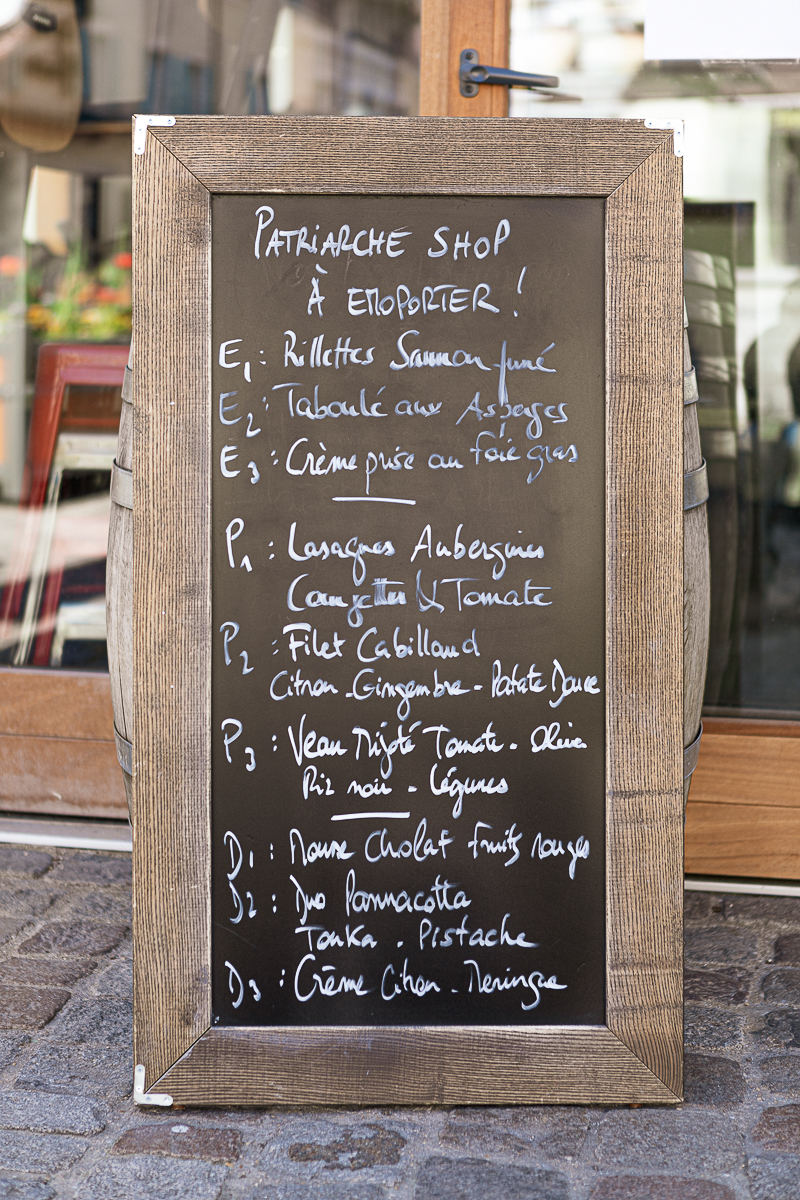 PATRIARCHE SHOP
À EMPORTER !
E1 : Rillettes Saumon fumé
E2 : Taboulé aux Asperges
E3 : Crème prise au foie gras
P1 : Lasagnes Aubergines
Courgettes & Tomate
P2 : Filet Cabillaud
Citron - Gingembre - Patate Douce
P3 : Veau Mijoté Tomate - Olives
Riz noir - légumes
D1 : Mousse Cholat fruits rouges
D2 : Duo Pannacotta
Tonka - Pistache
D3 : Crème Citron - Meringue